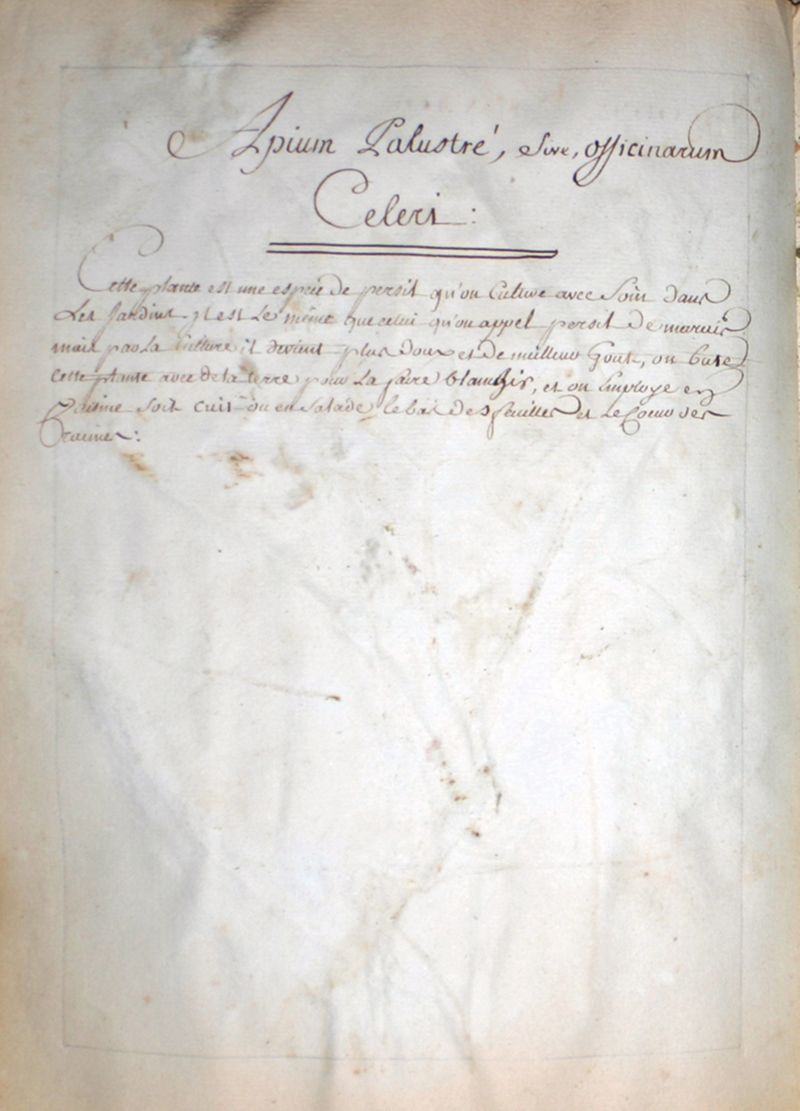 Apium Palustré, sive, officinarum
Celeri :
Cette plante est une espéce de persil qu'on Cultive avec Soin dans
Les Jardins. il est Le même que celui qu'on appel persil de marais
mais par La Culture il devient plus doux et de meilleur Gout, on bute
Cette plante avec de la terre pour La faire blanchir, et on Employe en
Cuisine soit cuit ou en Salade le bas des feuilles et Le Coeur des
racines :